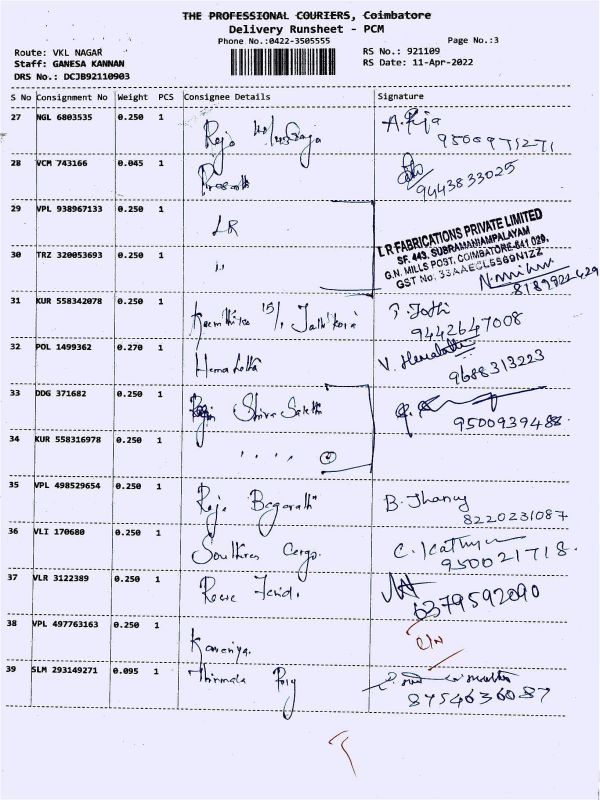 THE PROFESSIONAL COURIERS, Coimbatore
Delivery Runsheet - PCM
Phone No.:0422-3505555 Page No.:3
Route: VKL NAGAR RS No.: 921109
Staff: GANESA KANNAN RS Date: 11-Apr-2022
DRS No.: DCJB92110903
S No Consignment No Weight PCS Consignee Details Signature
27 NGL 6803535 0.250 1 Raja A. Raja
9500971271
28 VCM 743166 0.045 1 Prasath
9443833025
29 VPL 938967133 0.250 1 LR
L R FABRICATIONS PRIVATE LIMITED
SF. 443, SUBRAMANIAMPALAYAM
G.N. MILLS POST, COIMBATORE-641 029.
GST No. 33AAECL5569N1ZZ
30 TRZ 320053693 0.250 1 ,,
31 KUR 558342078 0.250 1 15/1 T. Jothi
9442647008
32 POL 1499362 0.270 1 Hema Latha V. Hemalatha
9688313223
33 DDG 371682 0.250 1 Shiva Sakthi
9500939488.
34 KUR 558316978 0.250 1 , , , ,
35 VPL 498529654 0.250 1 Raja Bagarath B. Jhancy
8220231087
36 VLI 170680 0.250 1 Southern Cargo. C.
950021718.
37 VLR 3122389 0.250 1
6379592090
38 VPL 497763163 0.250 1 Kaneniya.
39 SLM 293149271 0.095 1 Thirmala Poly
8754636087